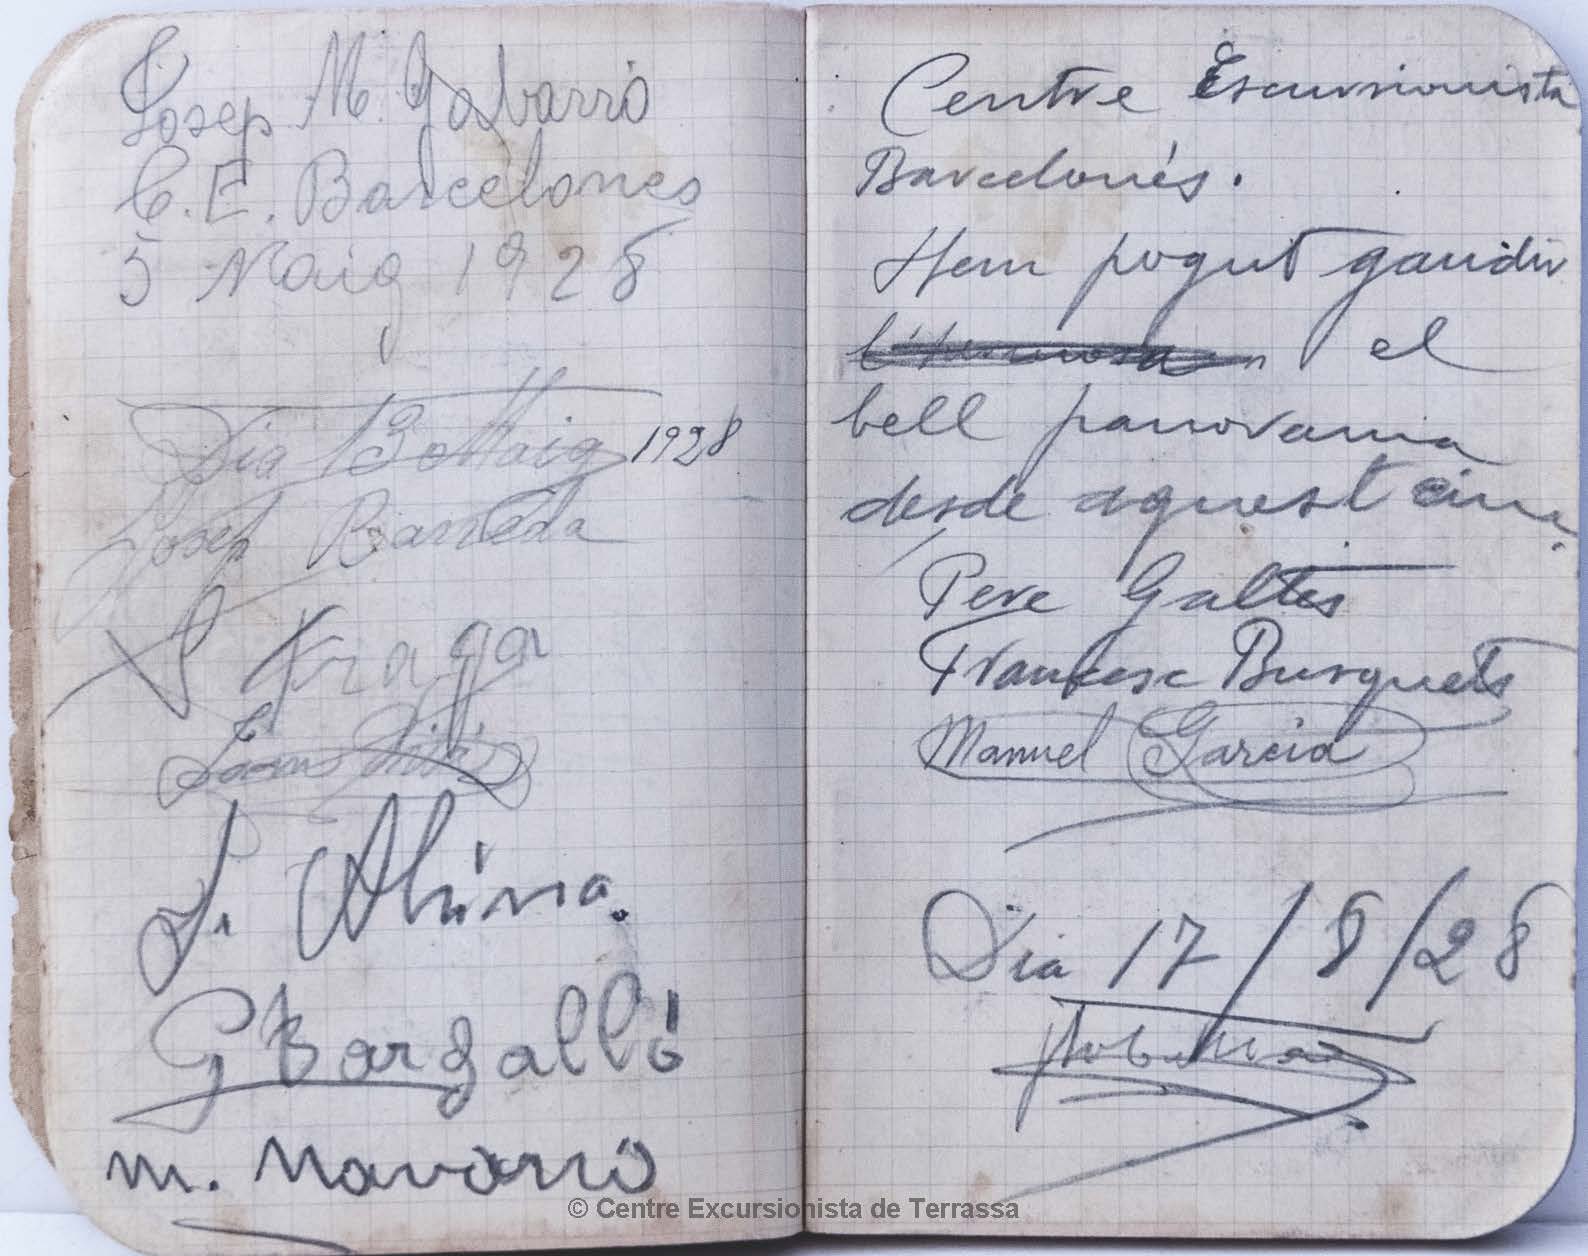 Josep M. Gabarró
C. E. Barcelones
5 Maig 1928
Dia 13 Maig 1928
Josep Barreda
Fraga
Alsina.
G Bargalló
M. Navarro
Centre Escursionista
Barcelonés.
Hem pogut gaudir
el
bell panorama
desde aquest cim.
Pere Galtés
Francesc Busquets
Manuel Garcia
Dia 17/8/28
© Centre Excursionista de Terrassa